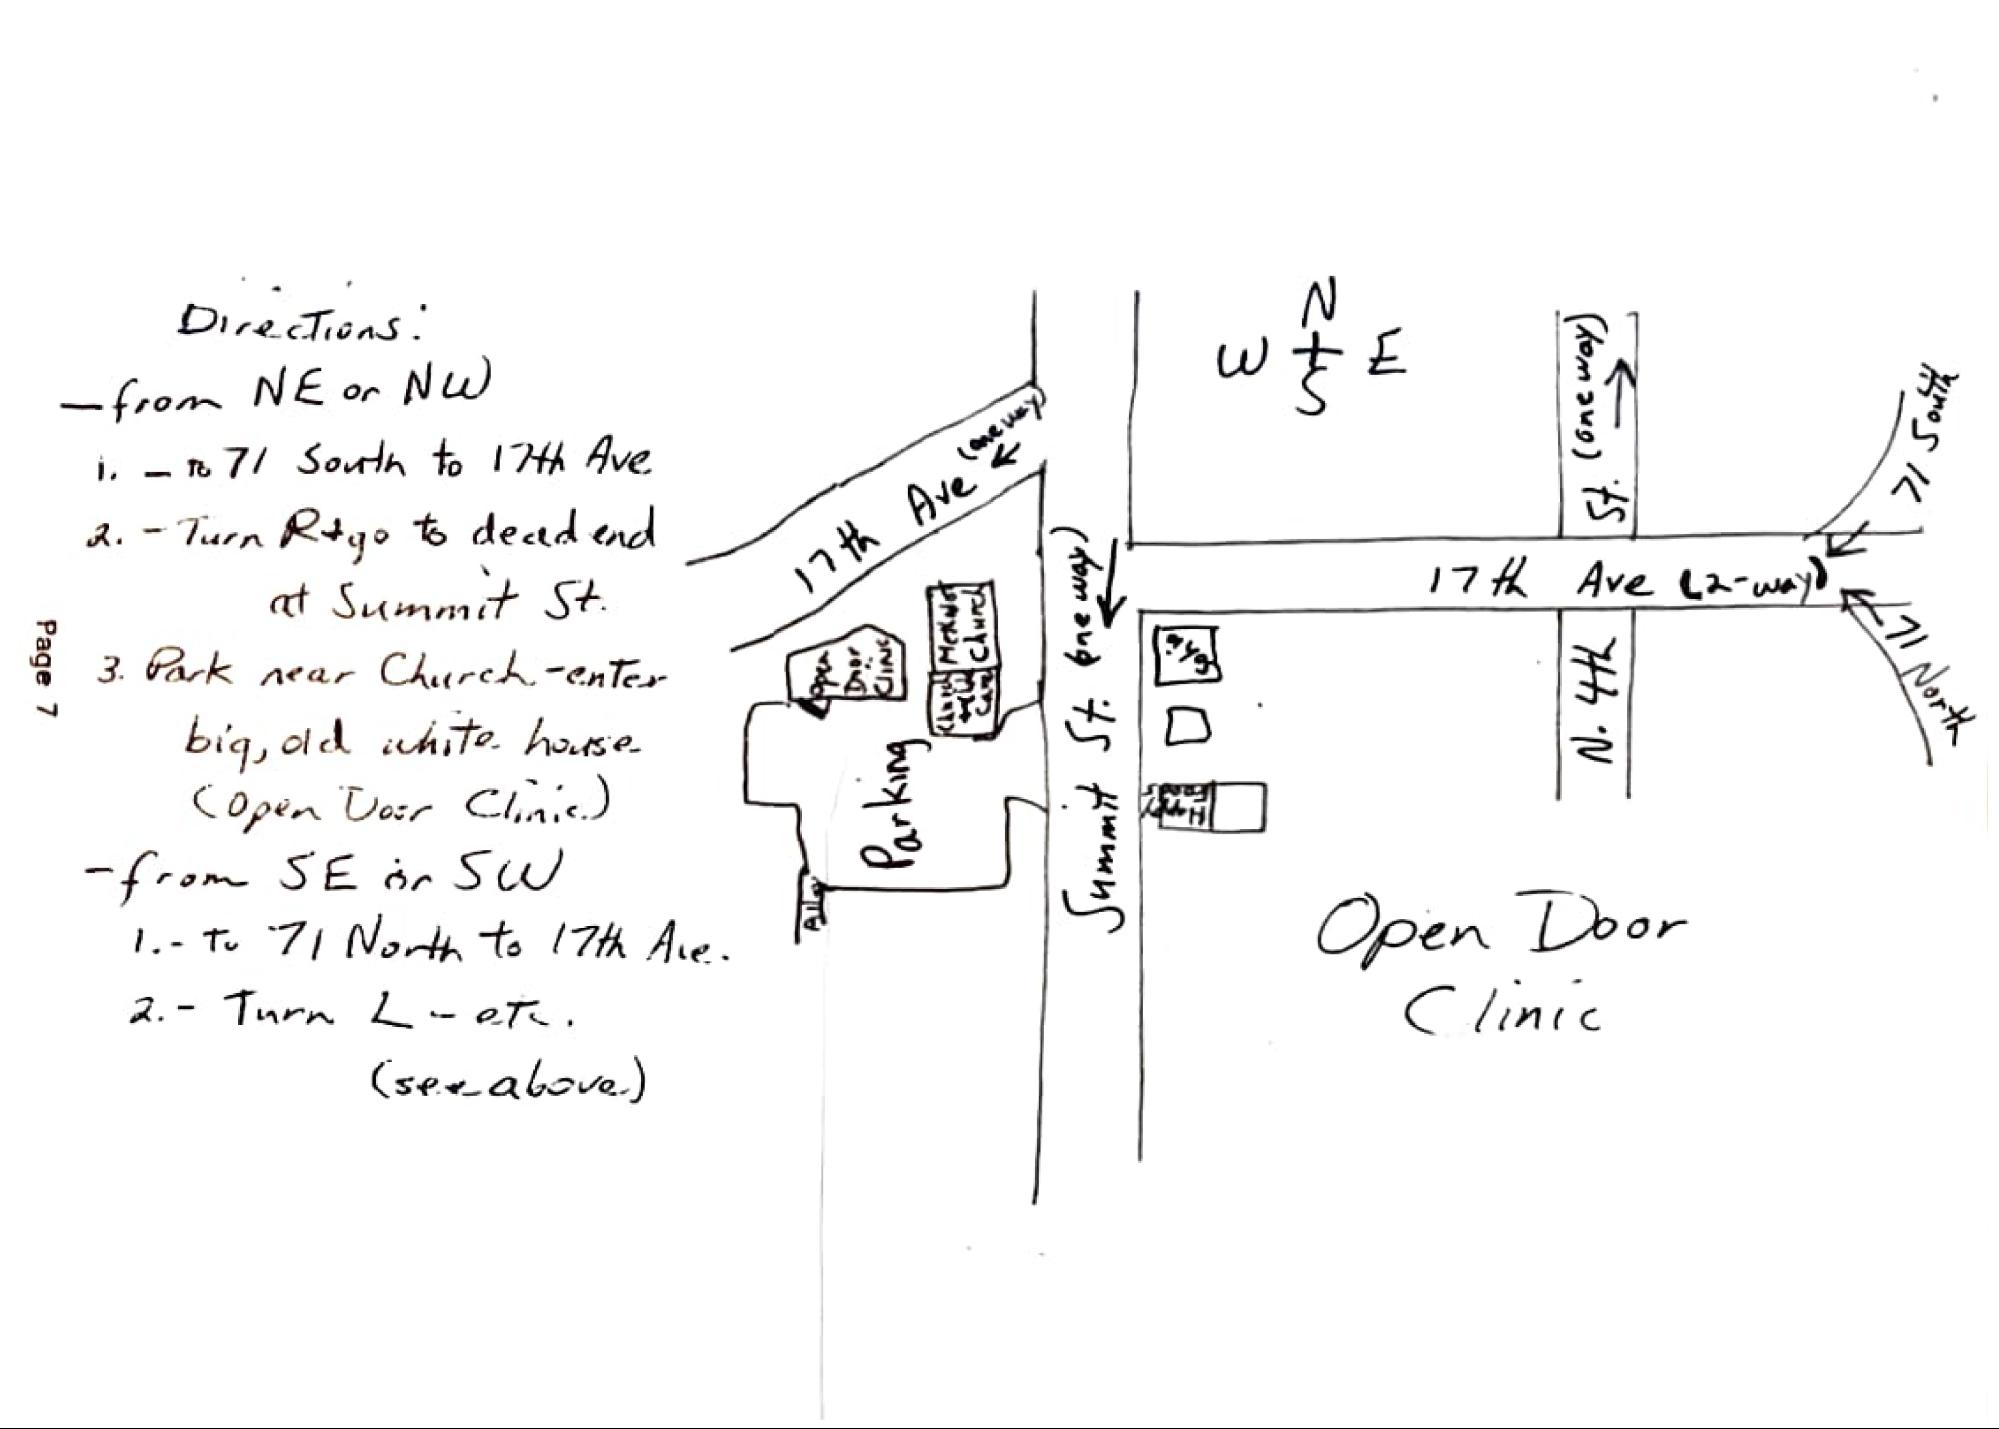 Directions:
- from NE or NW
1. - to 71 South to 17th Ave
2. - Turn R + go to dead end
at Summit St.
3. Park near Church - enter
big, old white house
(Open Door Clinic)
- from SE or SW
1. - to 71 North to 17th Ave.
2. - Turn L - etc.
(see above)
Page 7
17th Ave (one way)
Open
Door
Clinic
Methodist
Church
Church
Care
Parking
Alley
Summit St. (one way)
N
W E
S
N. 4th St. (one way)
17th Ave (2-way)
71 South
71 North
Open Door
Clinic